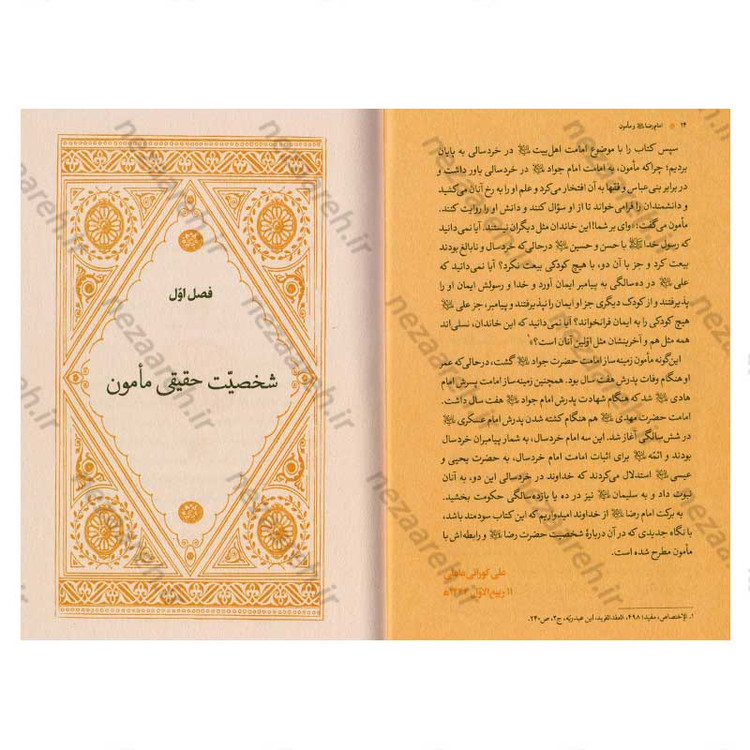 ۱۴ امام رضا ﷷ و مأمون
سپس کتاب را با موضوع امامت اهل‌بیت در خردسالی به پایان
بردیم؛ چراکه مأمون، به امامت امام جواد در خردسالی باور داشت و
در برابر بنی‌عباس و فقها به آن افتخار می‌کرد و علم او را به رخ آنان می‌کشید
و دانشمندان را فرامی‌خواند تا از او سؤال کنند و دانش او را روایت کنند.
مأمون می‌گفت: «وای بر شما! این خاندان مثل دیگران نیستند. آیا نمی‌دانید
که رسول خدا با حسن و حسین درحالی‌که خردسال و نابالغ بودند
بیعت کرد و جز با آن دو، با هیچ کودکی بیعت نکرد؟ آیا نمی‌دانید که
علی در ده‌سالگی به پیامبر ایمان آورد و خدا و رسولش ایمان او را
پذیرفتند و از کودک دیگری جز او ایمان را نپذیرفتند و پیامبر، جز علی
هیچ کودکی را به ایمان فرانخواند؟ آیا نمی‌دانید که این خاندان، نسلی‌اند
همه مثل هم و آخرینشان مثل اولین آنان است؟»۱
این‌گونه مأمون زمینه‌ساز امامت حضرت جواد گشت، درحالی‌که عمر
او هنگام وفات پدرش هفت سال بود. همچنین زمینه‌ساز امامت پسرش امام
هادی شد که هنگام شهادت پدرش امام جواد هفت سال داشت.
امامت حضرت مهدی هم هنگام کشته شدن پدرش امام عسکری
در شش‌سالگی آغاز شد. این سه امام خردسال، به شمار پیامبران خردسال
بودند و ائمه برای اثبات امامت امام خردسال، به حضرت یحیی و
عیسی استدلال می‌کردند که خداوند در خردسالی این دو، به آنان
نبوت داد و به سلیمان نیز در ده یا یازده‌سالگی حکومت بخشید.
به برکت امام رضا از خداوند امیدوریم که این کتاب سودمند باشد،
با نگاه جدیدی که در آن دربارهٔ شخصیت حضرت رضا و رابطه‌اش با
مأمون مطرح شده است.
علی کورانی عاملی
۱۱ ربیع‌الاوّل
۱. الإختصاص، مفید: ۴۹۸؛ العقد الفرید، ابن عبدربّه، ج۲، ص۲۴۰.
فصل اوّل
شخصیّت حقیقی مأمون
nezaareh.ir